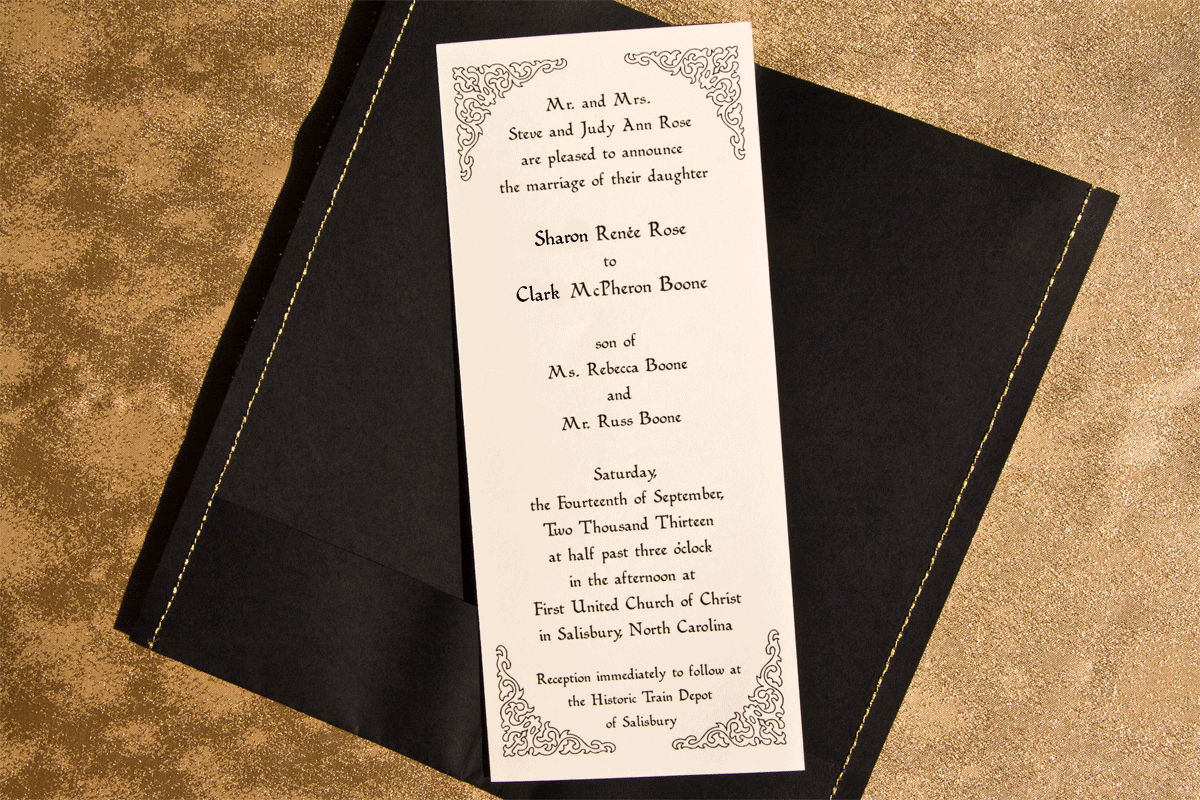 Mr. and Mrs.
Steve and Judy Ann Rose
are pleased to announce
the marriage of their daughter
Sharon Renée Rose
to
Clark McPheron Boone
son of
Ms. Rebecca Boone
and
Mr. Russ Boone
Saturday,
the Fourteenth of September,
Two Thousand Thirteen
at half past three o'clock
in the afternoon at
First United Church of Christ
in Salisbury, North Carolina
Reception immediately to follow at
the Historic Train Depot
of Salisbury